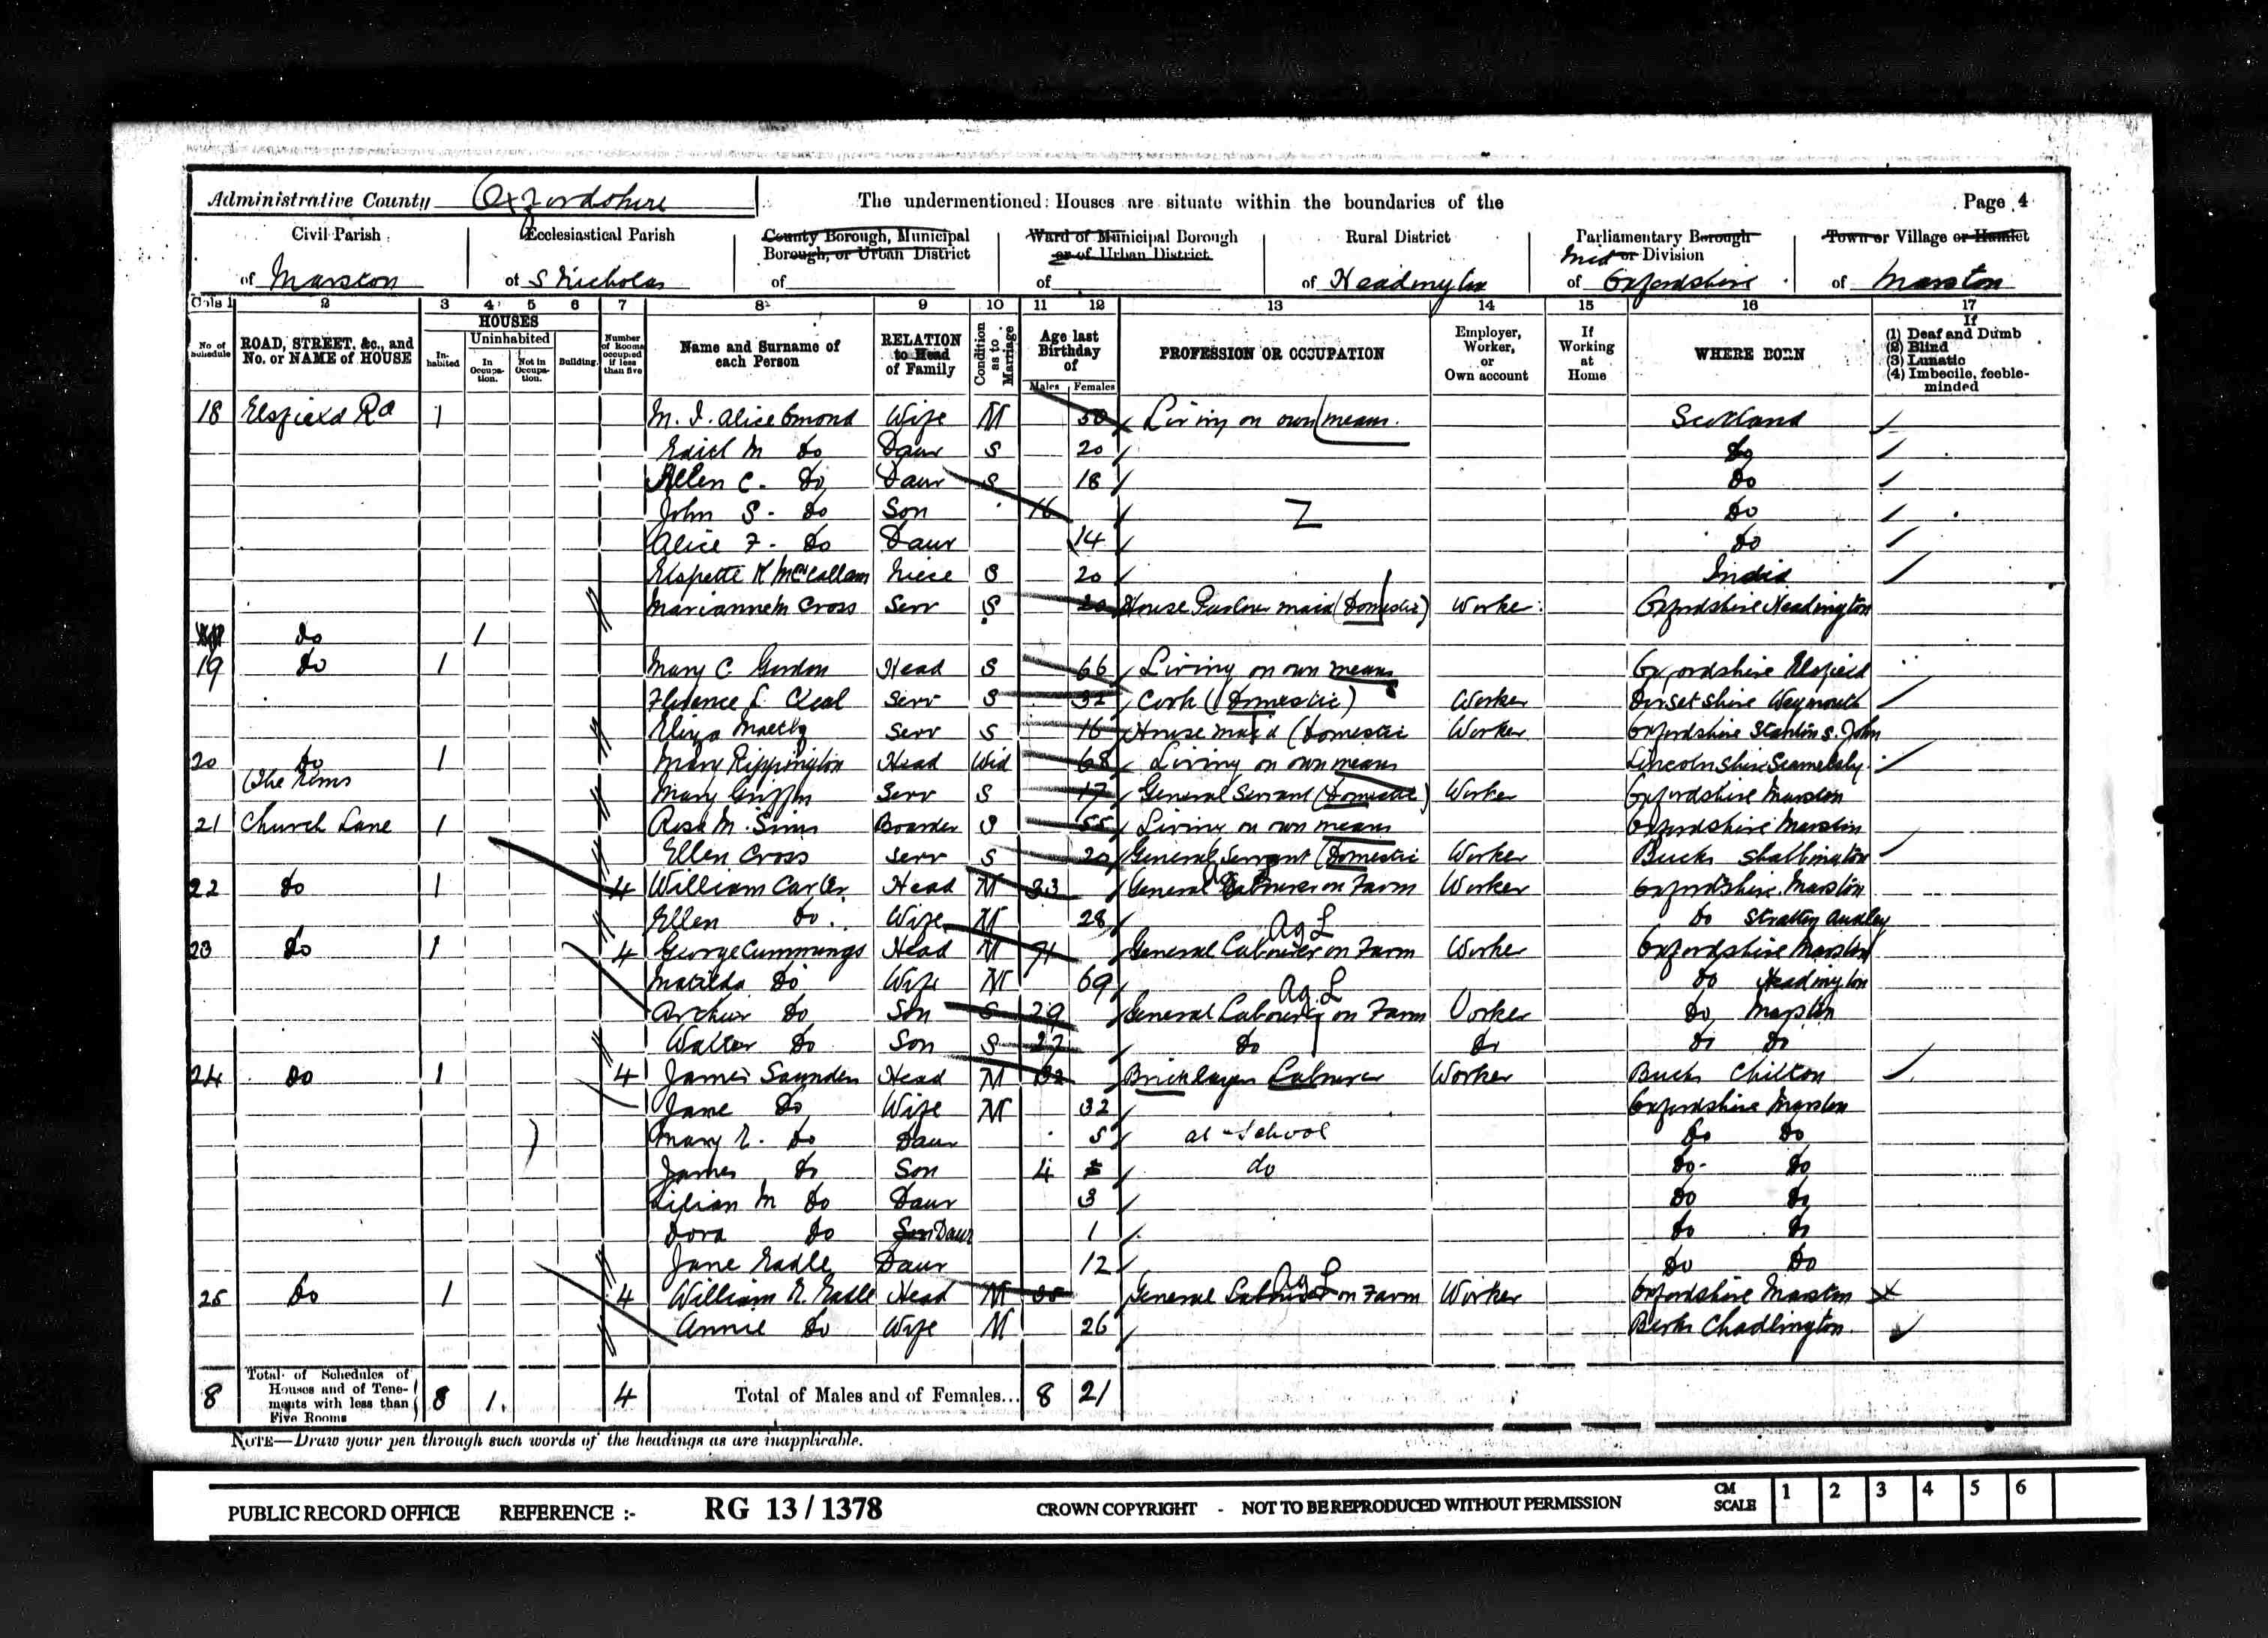 Administrative County Oxfordshire The undermentioned Houses are situate within the boundaries of the Page 4
Civil Parish of Marston
Ecclesiastical Parish of S Nicholas
County Borough, Municipal Borough, or Urban District of
Ward of Municipal Borough or of Urban District of
Rural District of Headington
Parliamentary Borough or Mid Division of Oxfordshire
Town or Village or Hamlet of Marston
Cols 1 2 3 4 5 6 7 8 9 10 11 12 13 14 15 16 17
No of Schedule
ROAD, STREET, &c., and No. or NAME of HOUSE
HOUSES
Inhabited
Uninhabited
In Occupation.
Not in Occupation.
Building.
Number of Rooms occupied if less than five
Name and Surname of each Person
RELATION to Head of Family
Condition as to Marriage
Age last Birthday of
Males Females
PROFESSION OR OCCUPATION
Employer, Worker, or Own account
If Working at Home
WHERE BORN
If
(1) Deaf and Dumb
(2) Blind
(3) Lunatic
(4) Imbecile, feeble-minded
18 Elsfield Rd 1 M. I. Alice Omond Wife M 50 Living on own means. Scotland
Edith M Do Daur S 20 Do
Ellen C. Do Daur S 18 Do
John S. Do Son 16 Do
Alice F. Do Daur 14 Do
Elspette K McCallam Niece S 20 India
Marianne M Cross Serv S 20 House Parlour maid (Domestic) Worker Oxfordshire Headington
do 1
19 do 1 Mary C. Gordon Head S 66 Living on own means Oxfordshire Elsfield
Florence L. Cleal Serv S 32 Cook (Domestic) Worker Dorsetshire Weymouth
Eliza Serv S 16 House maid (Domestic Worker Oxfordshire Stanton S. John
20 do 1 Mary Rippington Head Wid 68 Living on own means Lincolnshire
The Elms Mary Griffin Serv S 17 General Servant (Domestic) Worker Oxfordshire Marston
21 Church Lane 1 Rose M. Sims Boarder S 55 Living on own means Oxfordshire Marston
Ellen Cross Serv S 20 General Servant (Domestic Worker Bucks Shabbington
22 do 1 4 William Carter Head M 33 General Labourer on Farm Worker Oxfordshire Marston
Ellen Do. Wife M 28 Do Stratton Audley
Ag L
23 do 1 4 George Cummings Head M 71 General Labourer on Farm Worker Oxfordshire Marston
Matilda Do Wife M 69 Do Headington
Ag L
Archur Do Son S 29 General Labourer on Farm Worker Do Marston
Walter Do Son S 27 Do Do Do Do
24 do 1 4 James Saunders Head M 32 Bricklayers Labourer Worker Bucks Chilton
Jane Do Wife M 32 Oxfordshire Marston
Mary E. Do Daur 5 at School Do Do
James Do Son 4 do Do Do
Lilian M Do Daur 3 Do Do
Dora Do Son Daur 1 Do Do
Jane Eadle Daur 12 Do Do
Ag L
25 Do 1 4 William E. Eadle Head M 35 General Labourer on Farm Worker Oxfordshire Marston
Annie Do Wife M 26 Berks Chadlington
8 Total of Schedules of Houses and of Tenements with less than Five Rooms 8 1 4 Total of Males and of Females... 8 21
NOTE—Draw your pen through such words of the headings as are inapplicable.
PUBLIC RECORD OFFICE REFERENCE :- RG 13 / 1378 CROWN COPYRIGHT - NOT TO BE REPRODUCED WITHOUT PERMISSION CM SCALE 1 2 3 4 5 6